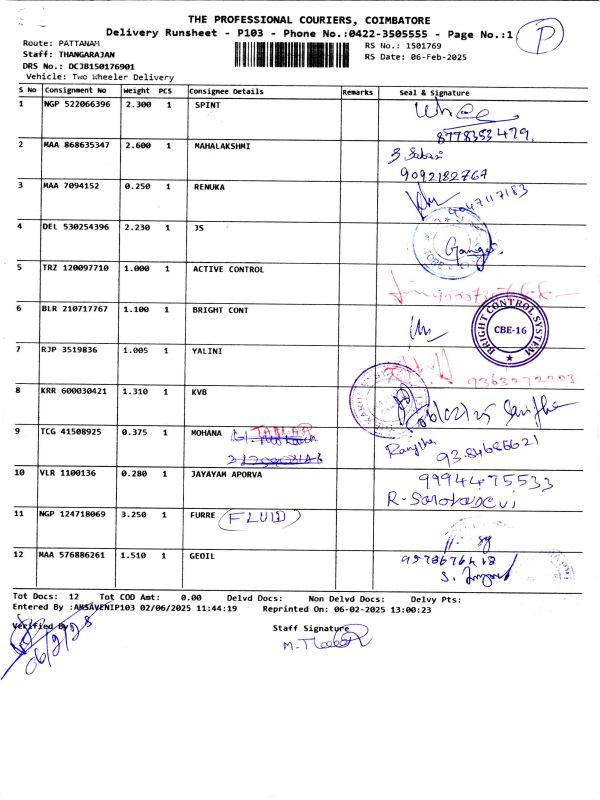 THE PROFESSIONAL COURIERS, COIMBATORE
Delivery Runsheet - P103 - Phone No.:0422-3505555 - Page No.:1
P
Route: PATTANAM
RS No.: 1501769
Staff: THANGARAJAN
RS Date: 06-Feb-2025
DRS No.: DCJB150176901
Vehicle: Two Wheeler Delivery
S No Consignment No Weight PCS Consignee Details Remarks Seal & Signature
1 NGP 522066396 2.300 1 SPINT
8778353479
2 MAA 868635347 2.600 1 MAHALAKSHMI
9092182767
3 MAA 7094152 0.250 1 RENUKA
9047117183
4 DEL 530254396 2.230 1 JS
5 TRZ 120097710 1.000 1 ACTIVE CONTROL
6 BLR 210717767 1.100 1 BRIGHT CONT
BRIGHT CONTROL SYSTEM
CBE-16
7 RJP 3519836 1.005 1 YALINI
9363272203
8 KRR 600030421 1.310 1 KVB
9 TCG 41508925 0.375 1 MOHANA
Ranjitha
10 VLR 1100136 0.280 1 JAYAYAM APORVA 9994475533
11 NGP 124718069 3.250 1 FURRE FLUID
12 MAA 576886261 1.510 1 GEOIL
Tot Docs: 12 Tot COD Amt: 0.00 Delvd Docs: Non Delvd Docs: Delvy Pts:
Entered By :ANSAVENIP103 02/06/2025 11:44:19 Reprinted On: 06-02-2025 13:00:23
Verified By
Staff Signature